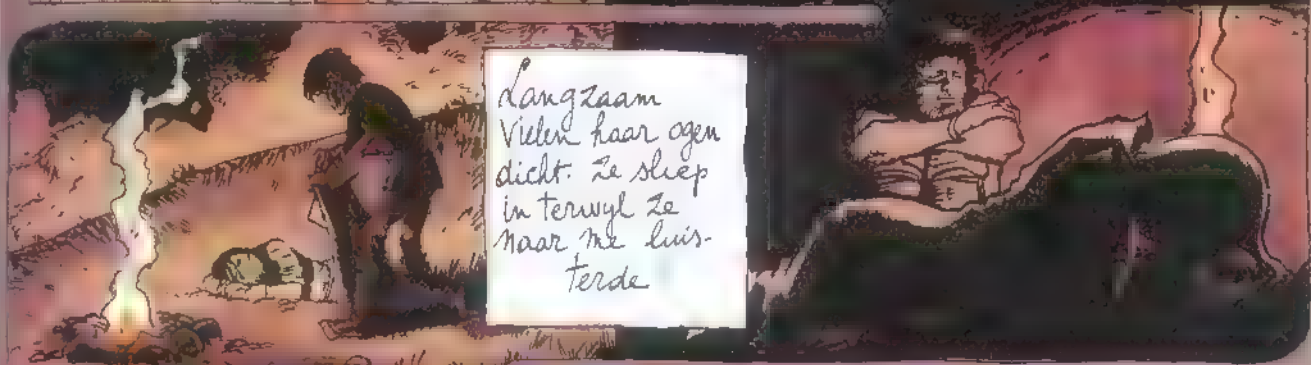 Langzaam
Vielen haar ogen
dicht. Ze sliep
in terwyl Ze
Naar me luis-
terde